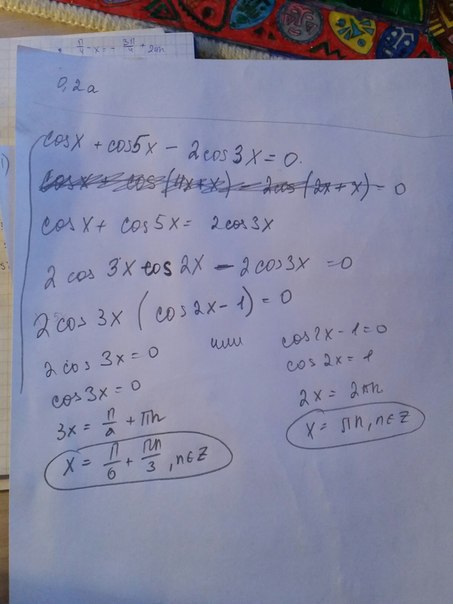 π/4 - x = - 3π/4 + 2πn
0,2a
cosx + cos5x - 2cos3x = 0.
cosx + cos5x = 2cos3x
2 cos 3x cos 2x - 2cos3x = 0
2cos 3x (cos2x - 1) = 0
2 cos 3x = 0 или cos2x - 1 = 0
cos3x = 0 cos2x = 1
3x = π/2 + πn 2x = 2πn
x = π/6 + πn/3, n∈Z x = πn, n∈Z